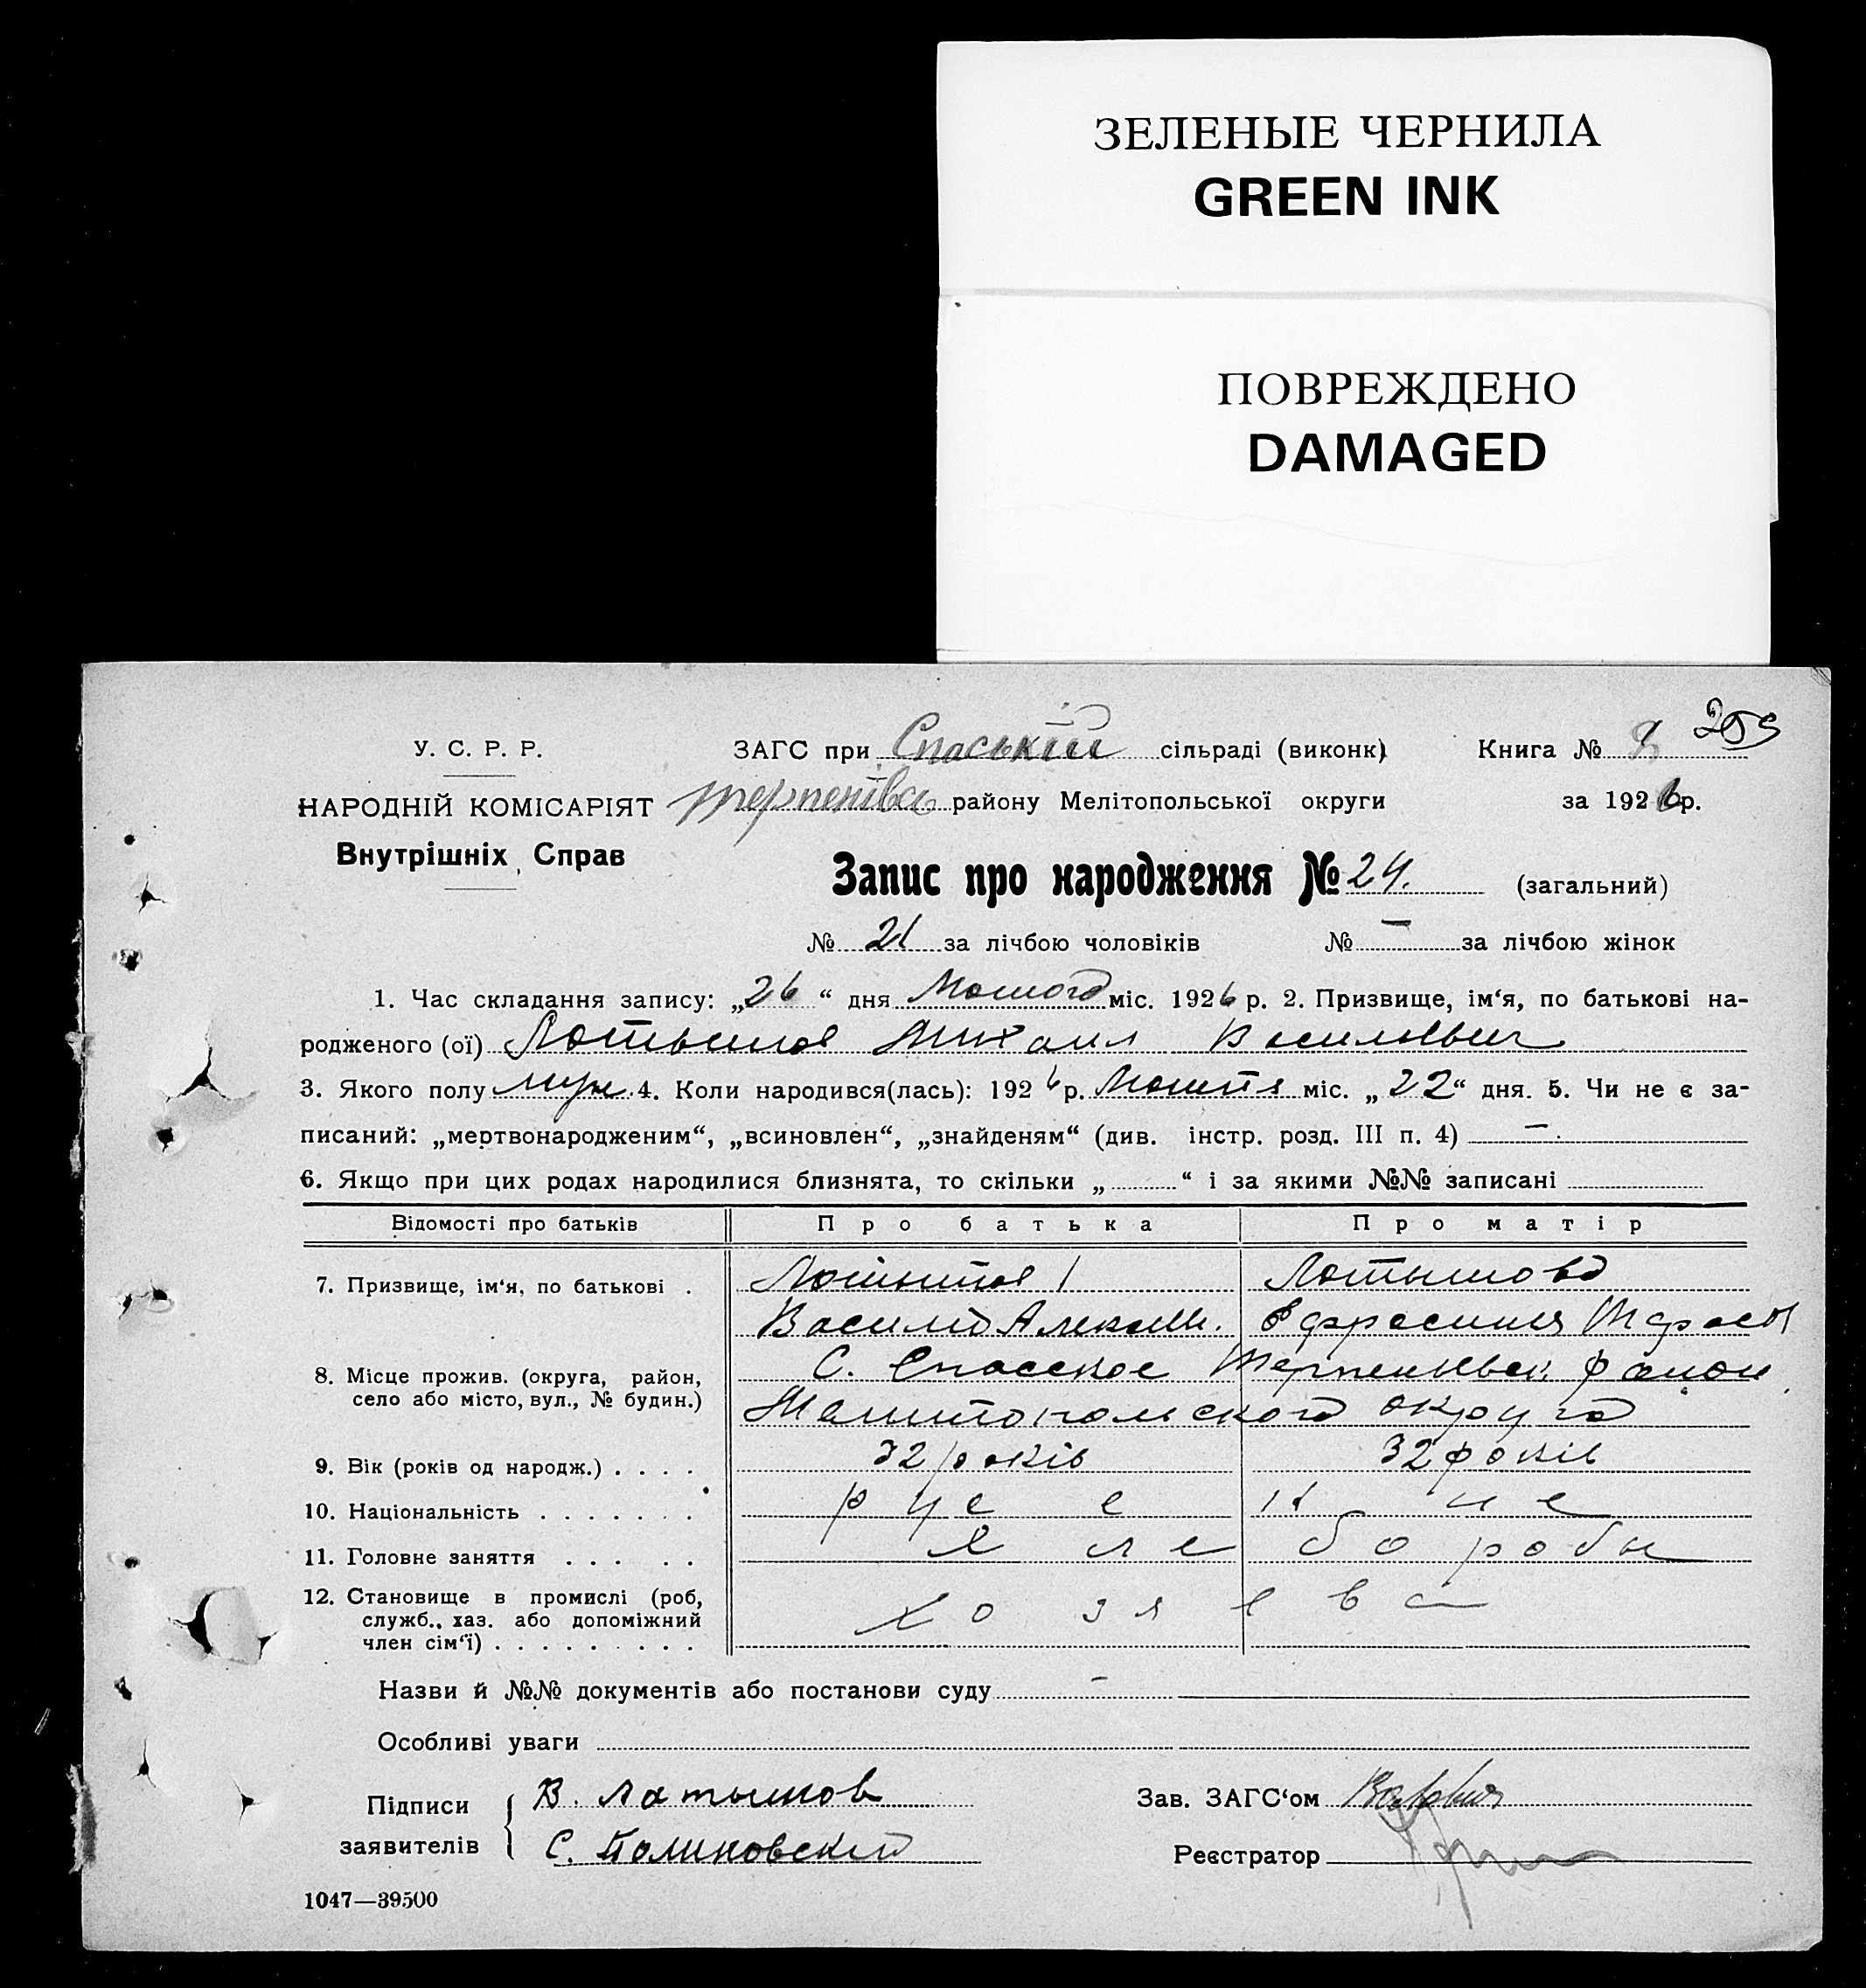 ЗЕЛЕНЫЕ ЧЕРНИЛА
GREEN INK
ПОВРЕЖДЕНО
DAMAGED
259
У. С. Р. Р. ЗАГС при Спаській сільраді (виконк) Книга №
НАРОДНІЙ КОМІСАРІЯТ района Мелітопольської округи за 1926 р.
Внутрішніх Справ
Запис про народження № 24. (загальний)
№ 21 за лічбою чоловіків № — за лічбою жінок
1. Час складання запису: „26“ дня міс. 1926 р. 2. Призвище, ім‘я, по батькові на-
родженого (ої) Латышов Михаил Васильевич
3. Якого полу муж. 4. Коли народився(лась): 1926 р. міс. „22“ дня. 5. Чи не є за-
писаний: „мертвонародженим“, „всиновлен“, „знайденям“ (див. інстр. розд. III п. 4) —.
6. Якщо при цих родах народилися близнята, то скільки „ “ і за якими №№ записані
Відомості про батьків Про батька Про матір
7. Призвище, ім‘я, по батькові . Латышов Латышова
Василий Алексеев.
8. Місце прожив. (округа, район, С. Спасское район
село або місто, вул., № будин.) Мелитопольского округа
9. Вік (років од народж.) . . . . 32 років 32 років
10. Національність . . . . . . . русские
11. Головне заняття . . . . . хлеборобы
12. Становище в промислі (роб, хозяева
служб., хаз. або допоміжний
член сім‘ї) . . . . . . . . .
Назви й №№ документів або постанови суду —
Особливі уваги
Підписи В. Латышов Зав. ЗАГС‘ом
заявителів С. Реєстратор
1047—39500